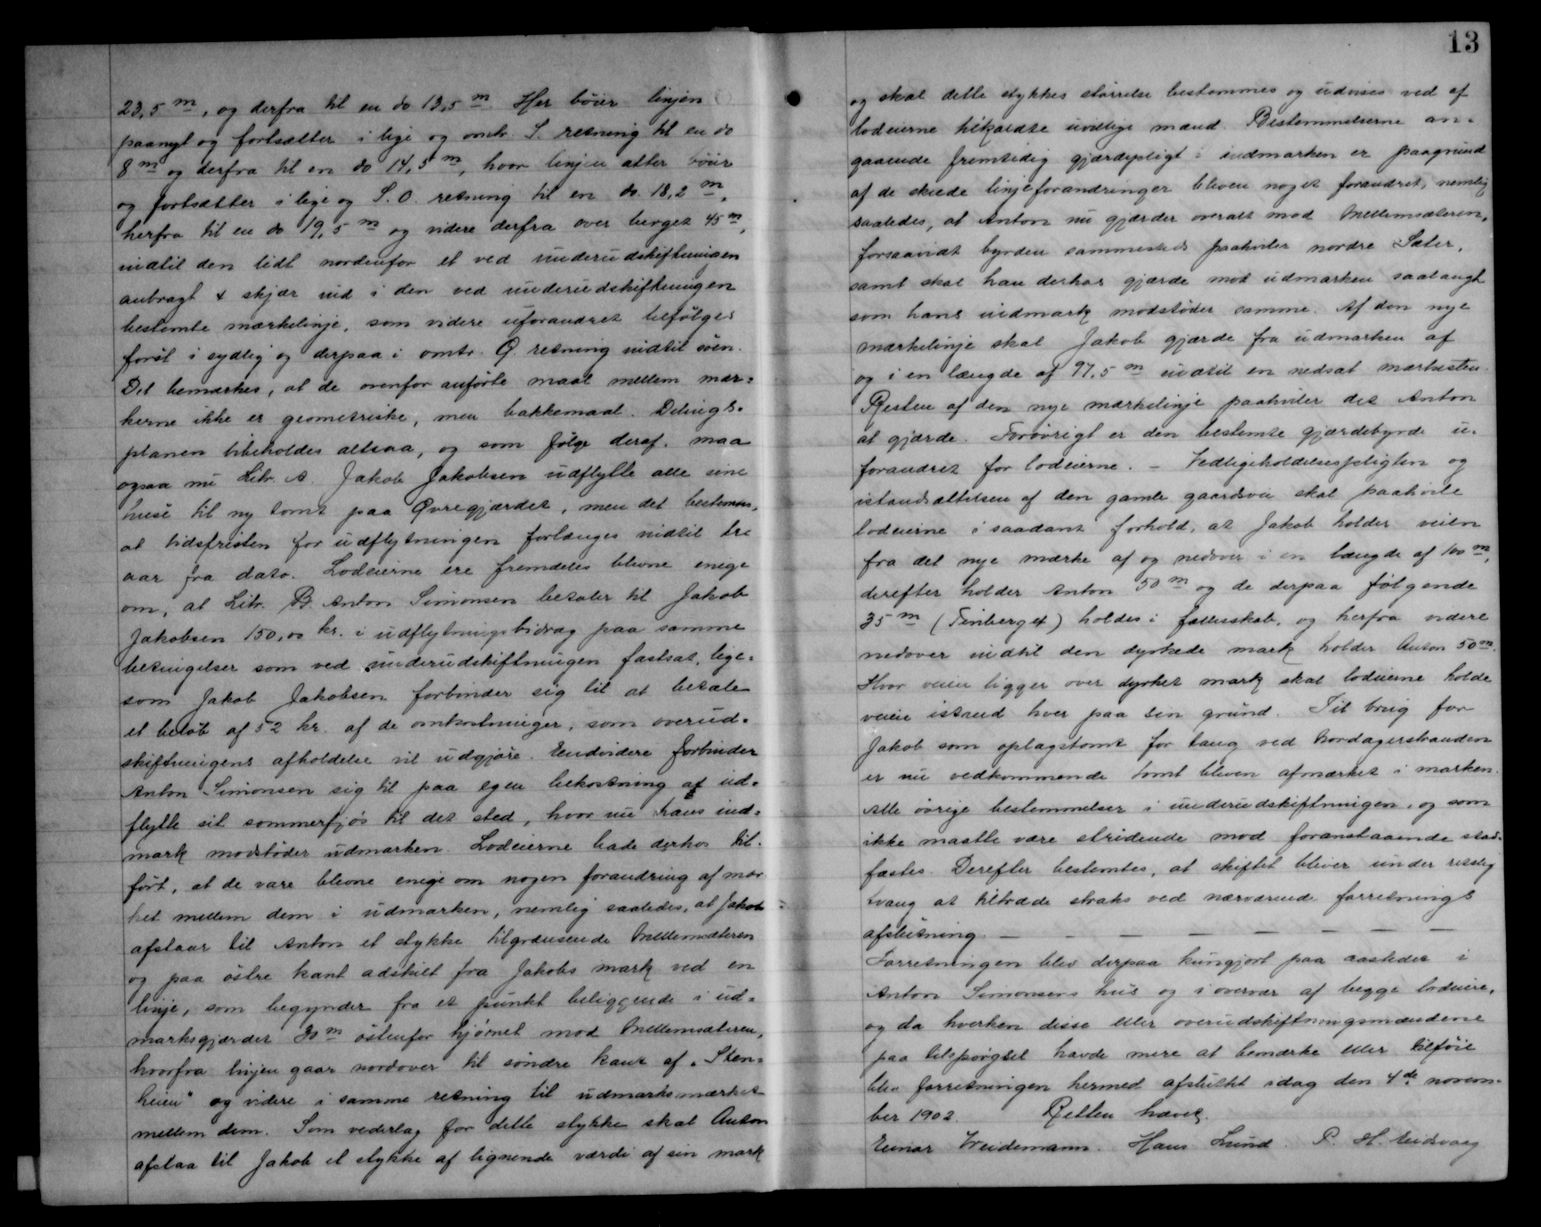 23,5 m, og derfra til en do 13,5 m. Her böier linjen
paanyt og fortsætter i lige og omtr. S. retning til en do
8 m og derfra til en do 14,5 m, hvor linjen atter böier
og fortsætter i lige og S.O. retning til en do 18,2 m,
herfra til en do 19,5 m og videre derfra over berget 45 m,
indtil den lidt nordenfor et ved underudskiftningen
anbragt x skjær ind i den ved underudskiftningen
bestemte mærkelinje, som videre uforandret befölges
först i sydlig og derpaa i omtr. Ö. retning indtil söen.
Det bemærkes, at de ovenfor anförte maal mellem mær-
kerne ikke er geometriske, men bakkemaal. Delings-
planen bibeholdes altsaa, og som fölge deraf maa
ogsaa nu Litr. A. Jakob Jakobsen udflytte alle sine
huse til ny tomt paa Övregjærdet, men det bestemmes,
at tidsfristen for udflytningen forlænges indtil tre
aar fra dato. Lodeierne ere fremdeles blevne enige
om, at Litr. B. Anton Simonsen betaler til Jakob
Jakobsen 150,00 kr. i udflytningsbidrag paa samme
betingelser som ved underudskiftningen fastsat, lige-
som Jakob Jakobsen forbinder sig til at betale
et belöb af 52 kr. af de omkostninger, som overud-
skiftningens afholdelse vil udgjöre. Endvidere forbinder
Anton Simonsen sig til paa egen bekostning at ud-
flytte sit sommerfjös til det sted, hvor nu hans ind-
mark modstöder udmarken. Lodeierne lade derhos til-
fört, at de vare blevne enige om nogen forandring af mær
ket mellem dem i udmarken, nemlig saaledes, at Jakob
afstaar til Anton et stykke tilgrænsende Mellemsæteren
og paa östre kant adskilt fra Jakobs mark ved en
linje, som begynder fra et punkt beliggende i ud-
marksgjærdet 30 m östenfor hjörnet mod Mellemsæteren,
hvorfra linjen gaar nordover til söndre kant af "Sten-
heien" og videre i samme retning til udmarksmærket
mellem dem. Som vederlag for dette stykke skal Anton
afstaa til Jakob et stykke af lignende værdi af sin mark
13
og skal dette stykkes störrelse bestemmes og udvises ved af
lodeierne tilkaldte uvillige mænd. Bestemmelserne an-
gaaende fremtidig gjærdepligt i indmarken er paagrund
af de skede linjeforandringer bleven noget forandret, nemlig
saaledes, at Anton nu gjærder overalt mod Mellemsæteren,
forsaavidt byrden sammesteds paahviler nordre Sæter,
samt skal han derhos gjærde mod udmarken saalangt
som hans indmark modstöder samme. Af den nye
mærkelinje skal Jakob gjærde fra udmarken af
og i en længde af 97,5 m indtil en nedsat mærkesten.
Resten af den nye mærkelinje paahviler det Anton
at gjærde. Forövrigt er den bestemte gjærdebyrde u-
forandret for lodeierne. – Vedligeholdelsespligten og
istandsættelsen af den gamle gaardsvei skal paahvile
lodeierne i saadant forhold, at Jakob holder veien
fra det nye mærke af og nedover i en længde af 100 m,
derefter holder Anton 50 m og de derpaa fölgende
35 m (Finberget) holdes i fællesskab, og herfra videre
nedover indtil den dyrkede mark holder Anton 50 m.
Hvor veien ligger over dyrket mark skal lodeierne holde
veien istand hver paa sin grund. Til brug for
Jakob som oplagstomt for taug ved Nordagerstranden
er nu vedkommende tomt bleven afmærket i marken.
Alle övrige bestemmelser i underudskiftningen, og som
ikke maatte være stridende mod foranstaaende stad-
fæstes. Derefter bestemtes, at skiftet bliver under retslig
tvang at tiltræde straks ved nærværende forretnings
afslutning. — — — — — — — —
Forretningen blev derpaa kungjort paa aastedet i
Anton Simonsens hus og i overvær af begge lodeiere,
og da hverken disse eller overudskiftningsmændene
paa tilspörgsel havde mere at bemærke eller tilföie
blev forretningen hermed afsluttet idag den 4de novem-
ber 1902. Retten hævet.
Einar Weidemann. Hans Lund. P. H. Eidsvaag